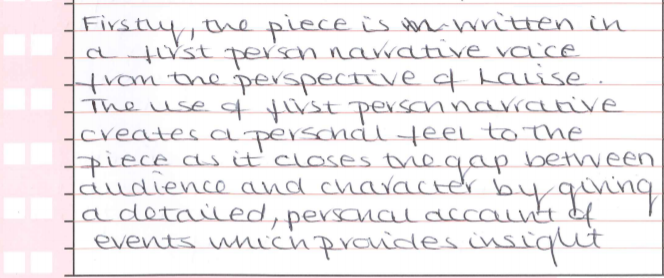 Firstly, the piece is written in
a first person narrative voice
from the perspective of Louise.
The use of first person narrative
creates a personal feel to the
piece as it closes the gap between
audience and character by giving
a detailed, personal account of
events which provides insight